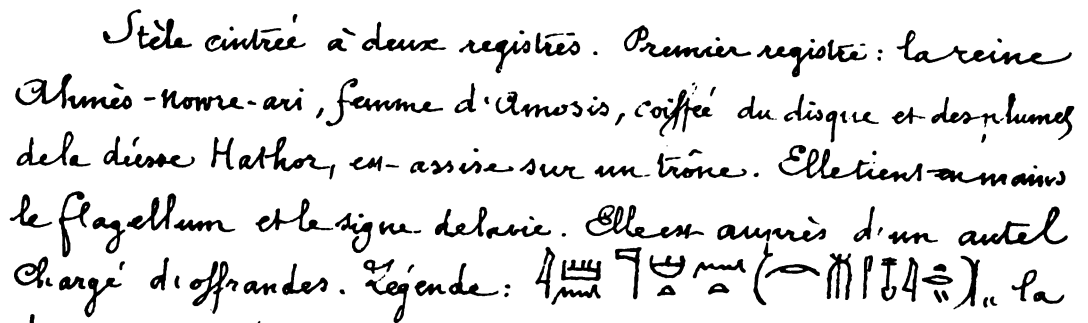 Stèle cintrée à deux registres. Premier registre : la reine
Ahmès-Nowre-ari, femme d'Amosis, coiffée du disque et des plumes
de la déesse Hathor, est assise sur un trône. Elle tient en mains
le flagellum et le signe de la vie. Elle est auprès d'un autel
chargé d'offrandes. Légende : la